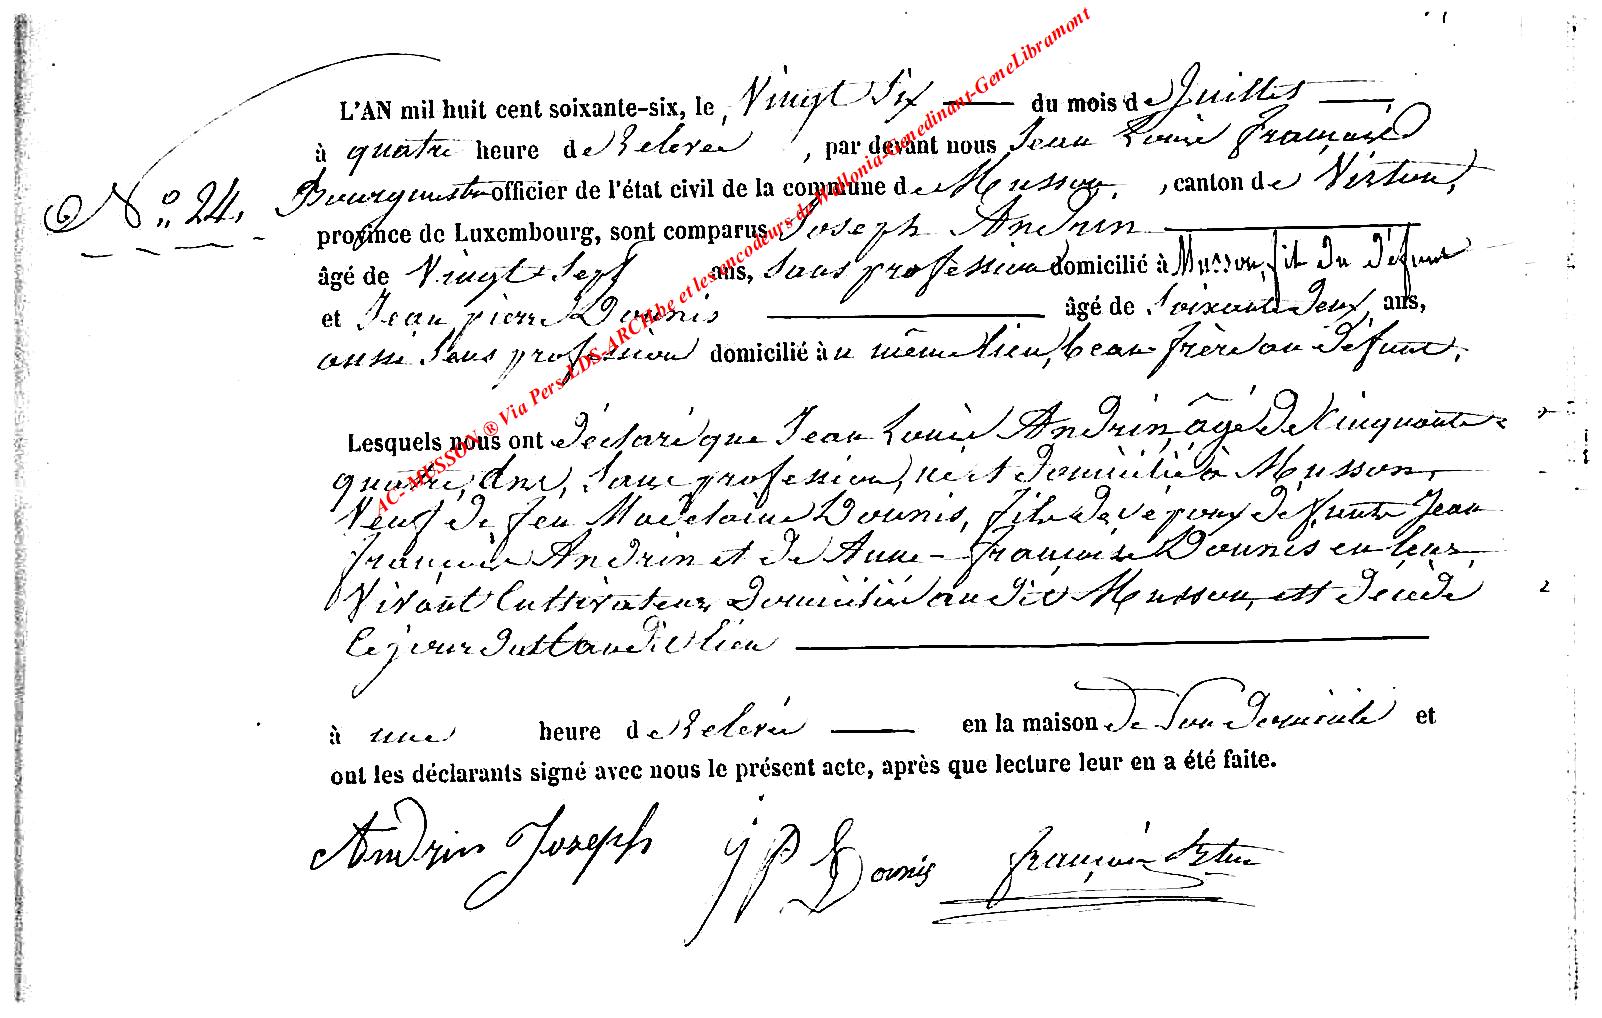 L'AN mil huit cent soixante-six, le Vingt Six du mois de Juillet,
à quatre heure de Relevée, par devant nous Jean Louis François
N° 24. Bourgmestre officier de l'état civil de la commune de Musson, canton de Virton,
province de Luxembourg, sont comparus Joseph Andrin
âgé de Vingt Sept ans, Sans profession domicilié à Musson, fils du défunt
et Jean pierre Dounis âgé de Soixante deux ans,
aussi Sans profession domicilié à u même lieu, beau frère au défunt,
Lesquels nous ont déclaré que Jean Louis Andrin, âgé de Cinquante
quatre, ans, Sans profession, né et domicilié à Musson,
Veuf de feu Madelaine Dounis, fils de époux défunts Jean
françois Andrin et de Anne-françoise Dounis en leur
Vivant Cultivateurs Domiciliés au dit Musson, est décédé
ce jour audit lieu
à une heure de Relevée en la maison de Son domicile et
ont les déclarants signé avec nous le présent acte, après que lecture leur en a été faite.
Andrin Joseph J P Dounis françois
AC- MUSSON ® Via Pers-LDS-ARCH.be et les encodeurs de Wallonia-Genedinant-GeneLibramont